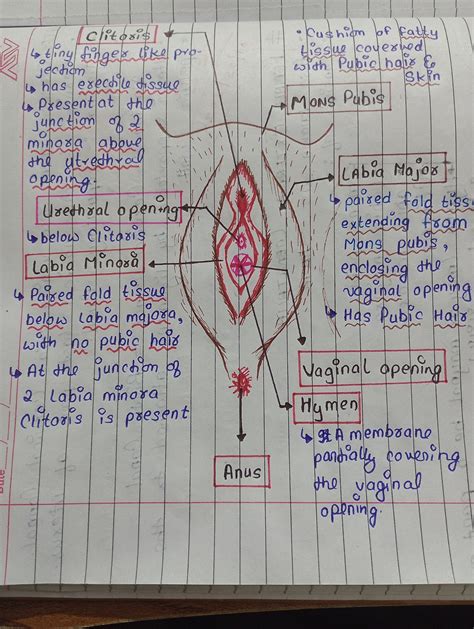 Clitoris
↳ tiny finger like pro-
jection
↳ has erectile tissue
↳ Present at the
junction of 2
minora above
the utrethral
opening.
Urethral opening
↳ below Clitoris
Labia Minora
↳ Paired fold tissue
below labia majora,
with no pubic hair
↳ At the junction of
2 labia minora
Clitoris is present
• Cushion of fatty
tissue covered
with Pubic hair &
Skin
Mons Pubis
LAbia Major
↳ paired fold tiss
extending from
Mons pubis,
enclosing the
vaginal opening
↳ Has Pubic Hair
Vaginal opening
Hymen
↳ A membrane
partially covering
the vaginal
opening.
Anus